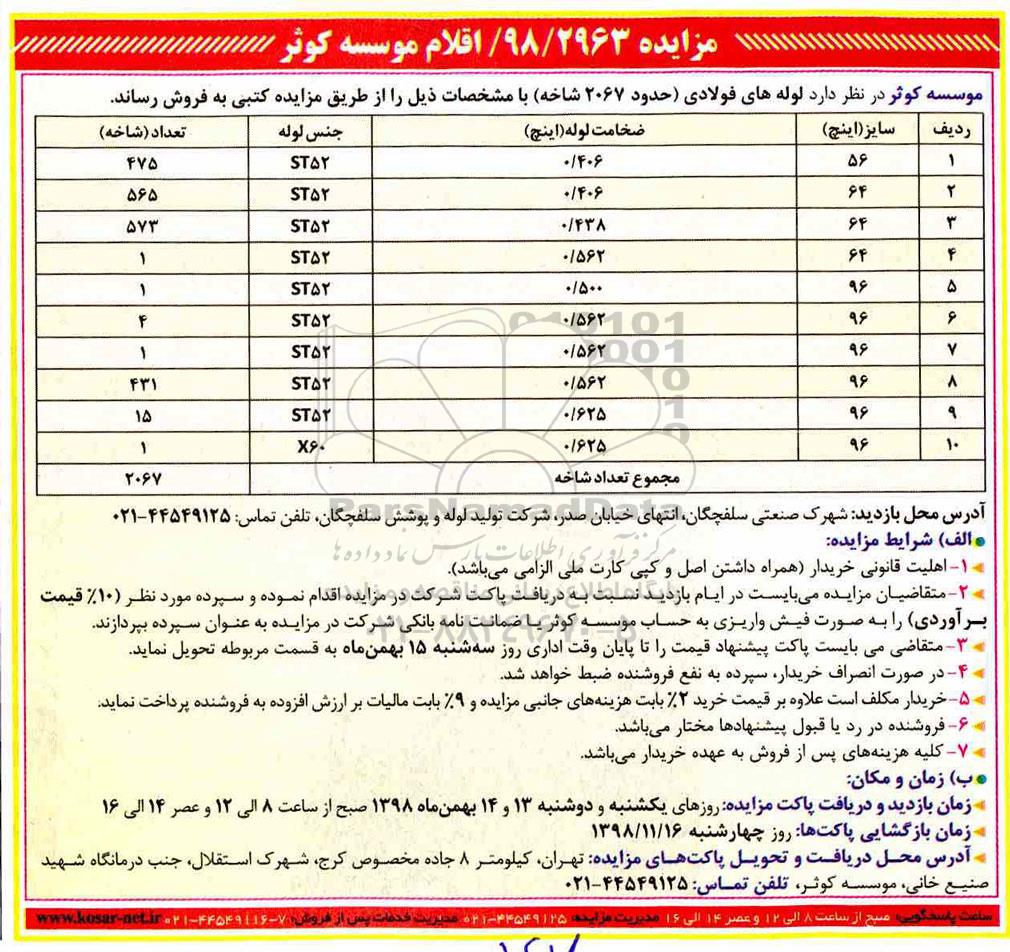 مزایده ۹۸/۲۹۶۳/ اقلام موسسه کوثر
موسسه کوثر در نظر دارد لوله های فولادی (حدود ۲۰۶۷ شاخه) با مشخصات ذیل را از طریق مزایده کتبی به فروش رساند.
ردیف سایز(اینچ) ضخامت لوله(اینچ) جنس لوله تعداد(شاخه)
۱ ۵۶ ۰/۴۰۶ ST۵۲ ۴۷۵
۲ ۶۴ ۰/۴۰۶ ST۵۲ ۵۶۵
۳ ۶۴ ۰/۴۳۸ ST۵۲ ۵۷۳
۴ ۶۴ ۰/۵۶۲ ST۵۲ ۱
۵ ۹۶ ۰/۵۰۰ ST۵۲ ۱
۶ ۹۶ ۰/۵۶۲ ST۵۲ ۴
۷ ۹۶ ۰/۵۶۲ ST۵۲ ۱
۸ ۹۶ ۰/۵۶۲ ST۵۲ ۴۳۱
۹ ۹۶ ۰/۶۲۵ ST۵۲ ۱۵
۱۰ ۹۶ ۰/۶۲۵ X۶۰ ۱
مجموع تعداد شاخه ۲۰۶۷
ParsNamadData
مرکز فرآوری اطلاعات پارس نماد داده ها
آدرس محل بازدید: شهرک صنعتی سلفچگان، انتهای خیابان صدر، شرکت تولید لوله و پوشش سلفچگان، تلفن تماس: ۴۴۵۴۹۱۲۵-۰۲۱
الف) شرایط مزایده:
۱- اهلیت قانونی خریدار (همراه داشتن اصل و کپی کارت ملی الزامی می‌باشد).
۲- متقاضیان مزایده می‌بایست در ایام بازدید نسبت به دریافت پاکت شرکت در مزایده اقدام نموده و سپرده مورد نظر (۱۰٪ قیمت
برآوردی) را به صورت فیش واریزی به حساب موسسه کوثر یا ضمانت نامه بانکی شرکت در مزایده به عنوان سپرده بپردازند.
۰۲۱-۸۸۳۴۹۶۷۰-۵
۳- متقاضی می بایست پاکت پیشنهاد قیمت را تا پایان وقت اداری روز سه‌شنبه ۱۵ بهمن‌ماه به قسمت مربوطه تحویل نماید.
۴- در صورت انصراف خریدار، سپرده به نفع فروشنده ضبط خواهد شد.
۵- خریدار مکلف است علاوه بر قیمت خرید ۲٪ بابت هزینه‌های جانبی مزایده و ۹٪ بابت مالیات بر ارزش افزوده به فروشنده پرداخت نماید.
۶- فروشنده در رد یا قبول پیشنهادها مختار می‌باشد.
۷- کلیه هزینه‌های پس از فروش به عهده خریدار می‌باشد.
ب) زمان و مکان:
زمان بازدید و دریافت پاکت مزایده: روزهای یکشنبه و دوشنبه ۱۳ و ۱۴ بهمن‌ماه ۱۳۹۸ صبح از ساعت ۸ الی ۱۲ و عصر ۱۴ الی ۱۶
زمان بازگشایی پاکت‌ها: روز چهارشنبه ۱۳۹۸/۱۱/۱۶
آدرس محل دریافت و تحویل پاکت‌های مزایده: تهران، کیلومتر ۸ جاده مخصوص کرج، شهرک استقلال، جنب درمانگاه شهید
صنیع خانی، موسسه کوثر، تلفن تماس: ۴۴۵۴۹۱۲۵-۰۲۱
ساعت پاسخگویی: صبح از ساعت ۸ الی ۱۲ و عصر ۱۴ الی ۱۶ مدیریت مزایده: ۴۴۵۴۹۱۲۵-۰۲۱ مدیریت خدمات پس از فروش: ۷-۴۴۵۴۹۱۱۶-۰۲۱ www.kosar-net.ir